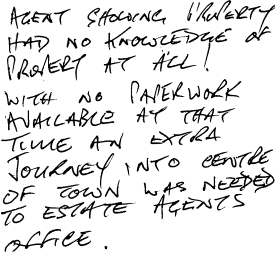 AGENT SHOWING PROPERTY
HAD NO KNOWLEDGE OF
PROPERT AT ALL!
WITH NO PAPERWORK
AVAILABLE AT THAT
TIME AN EXTRA
JOURNEY INTO CENTRE
OF TOWN WAS NEEDED
TO ESTATE AGENTS
OFFICE.